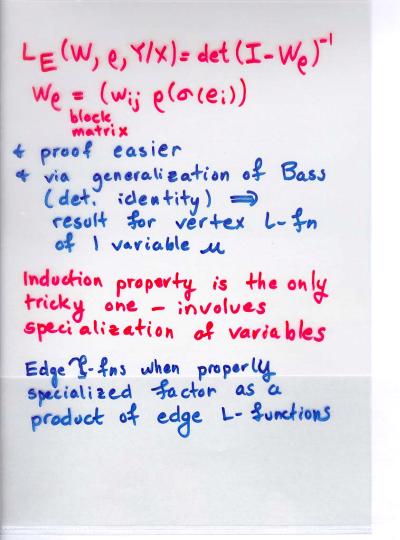 L_E(W, ρ, Y/X) = det(I - W_ρ)^{-1}
W_ρ = (w_{ij} ρ(σ(e_i)))
block
matrix
* proof easier
* via generalization of Bass
(det. identity) ⇒
result for vertex L-fn
of 1 variable u
Induction property is the only
tricky one - involves
specialization of variables
Edge ζ-fns when properly
specialized factor as a
product of edge L-functions